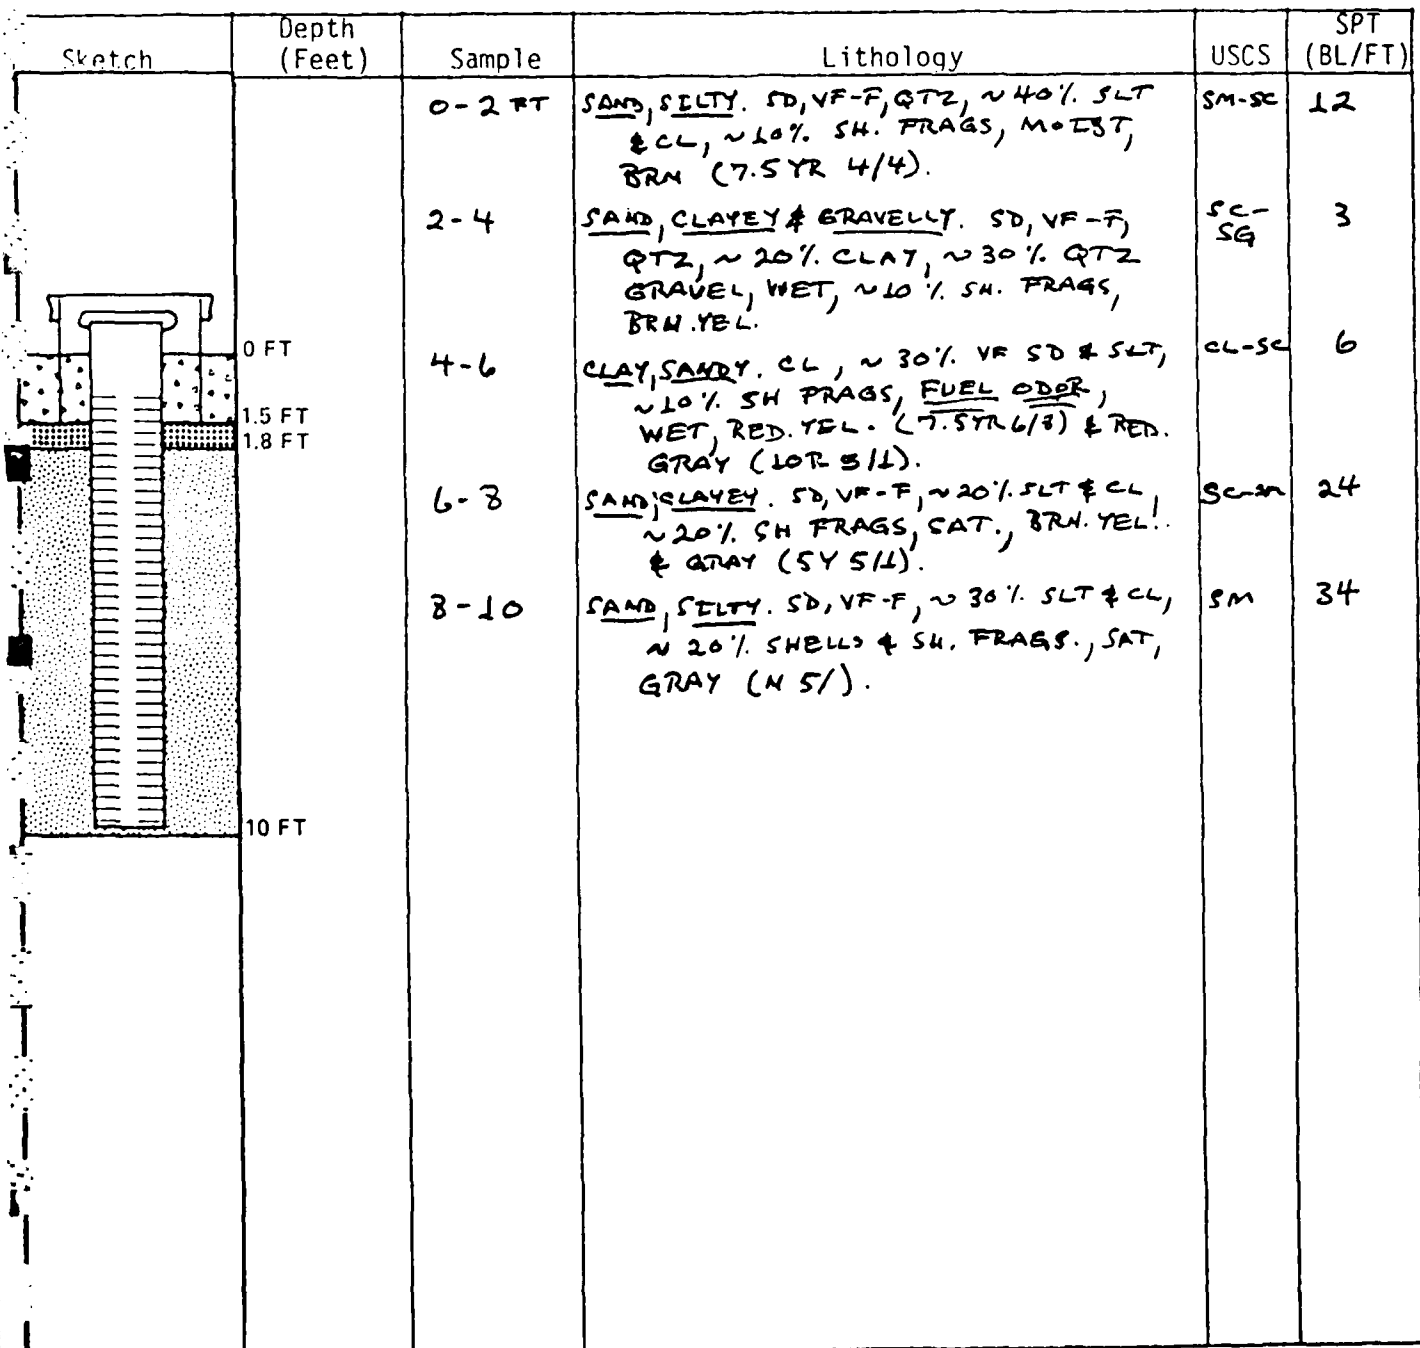 Sketch
Depth
(Feet)
Sample
Lithology
USCS
SPT
(BL/FT)
0-2 FT
SAND, SILTY. SD, VF-F, QTZ, ~40% SLT
& CL, ~10% SH. FRAGS, MOIST,
BRN (7.5 YR 4/4).
SM-SC
12
2-4
SAND, CLAYEY & GRAVELLY. SD, VF-F,
QTZ, ~20% CLAY, ~30% QTZ
GRAVEL, WET, ~10% SH. FRAGS,
BRN.YEL.
SC-
SG
3
0 FT
4-6
CLAY, SANDY. CL, ~30% VF SD & SLT,
~10% SH FRAGS, FUEL ODOR,
WET, RED.YEL. (7.5YR 6/8) & RED.
GRAY (10R 5/1).
CL-SC
6
1.5 FT
1.8 FT
6-8
SAND, CLAYEY. SD, VF-F, ~20% SLT & CL,
~20% SH FRAGS, SAT., BRN. YEL.
& GRAY (5Y 5/1).
SC-SM
24
8-10
SAND, SILTY. SD, VF-F, ~30% SLT & CL,
~20% SHELLS & SH. FRAGS., SAT,
GRAY (N 5/).
SM
34
10 FT